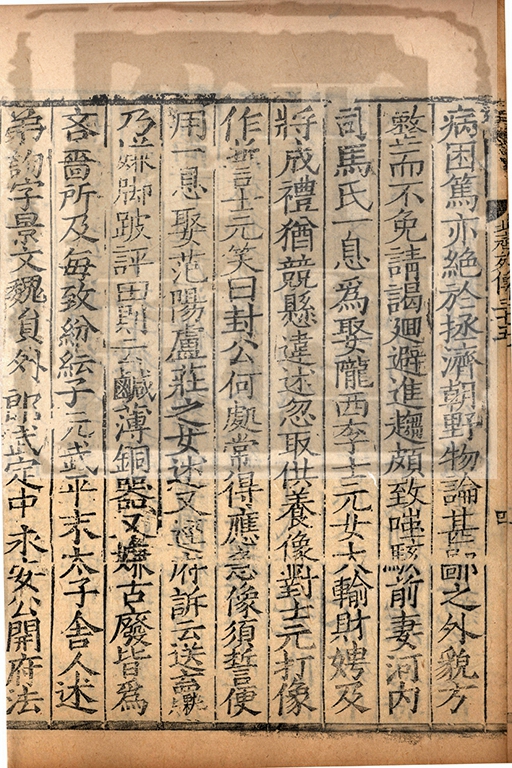 病困篤亦絶於拯濟朝野物論甚鄙之外貌方
整而不免請謁迴避進趨頗致嗤駭前妻河内
司馬氏一息爲娶隴西李士元女大輸財娉及
將成禮猶競懸違述忽取供養像對士元打像
作誓士元笑曰封公何處常得應急像須誓便
用一息娶范陽盧莊之女述又逕府訴云送騾
乃嫌脚跛評田則云鹹薄銅器又嫌古廢皆爲
吝嗇所及每致紛紜子元武平末太子舍人述
弟詢字景文魏員外郎武定中永安公開府法